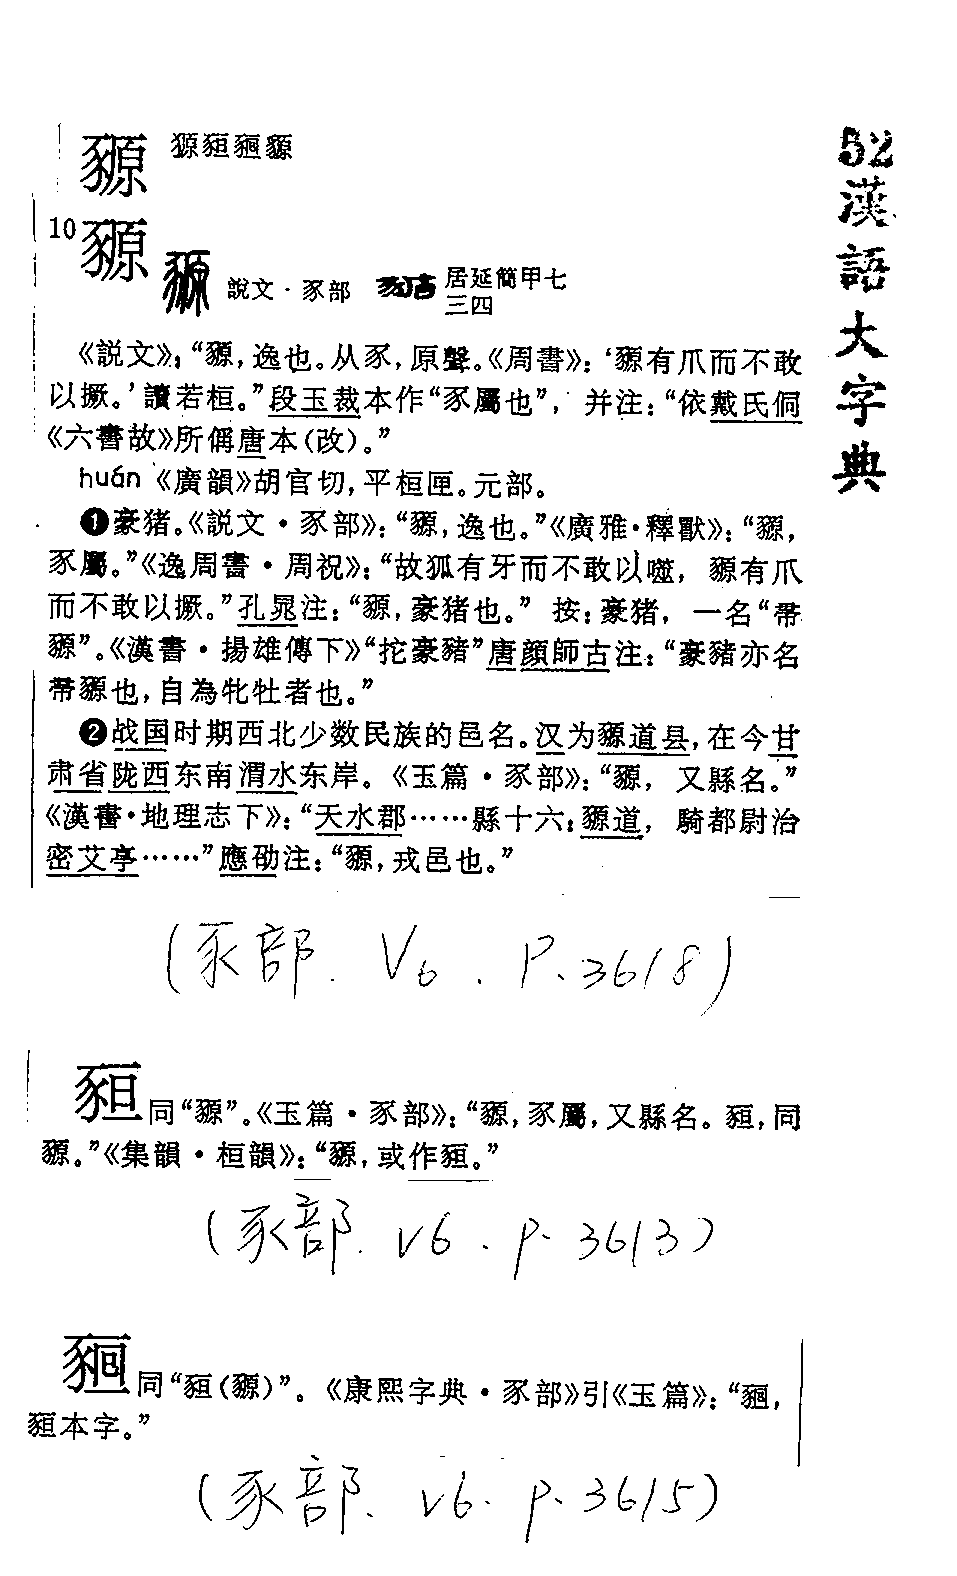 52漢語大字典
豲 獂䝠𧱚豲
10豲 豲 說文·豕部 居延簡甲七三四
《説文》：“豲，逸也。从豕，原聲。《周書》：‘豲有爪而不敢
以撅。’讀若桓。”段玉裁本作“豕屬也”，并注：“依戴氏侗
《六書故》所偁唐本（改）。”
huán《廣韻》胡官切，平桓匣。元部。
❶豪猪。《説文·豕部》：“豲，逸也。”《廣雅·釋獸》：“豲，
豕屬。”《逸周書·周祝》：“故狐有牙而不敢以噬，豲有爪
而不敢以撅。”孔晁注：“豲，豪猪也。” 按：豪猪，一名“帚
豲”。《漢書·揚雄傳下》“拕豪豬”唐顔師古注：“豪豬亦名
帚豲也，自為牝牡者也。”
❷战国时期西北少数民族的邑名。汉为豲道县，在今甘
肃省陇西东南渭水东岸。《玉篇·豕部》：“豲，又縣名。”
《漢書·地理志下》：“天水郡……縣十六：豲道，騎都尉治
密艾亭……”應劭注：“豲，戎邑也。”
（豕部. V6. P.3618）
䝠同“豲”。《玉篇·豕部》：“豲，豕屬，又縣名。䝠，同
豲。”《集韻·桓韻》：“豲，或作䝠。”
（豕部. V6. P.3613）
𧱚同“䝠（豲）”。《康熙字典·豕部》引《玉篇》：“𧱚，
䝠本字。”
（豕部. V6. P.3615）